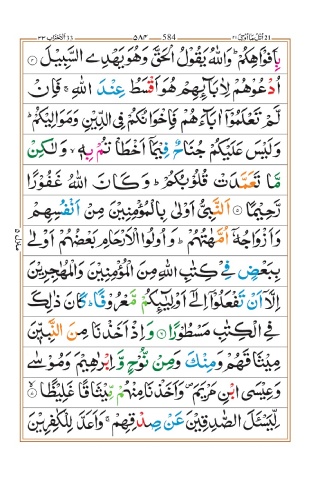 ٣٣ الاحزاب ٥٨٤ 584 اتل ما اوحی ٢١
بِاَفْوَاهِكُمْ ؕ وَاللّٰهُ يَقُوْلُ الْحَقَّ وَهُوَ يَهْدِى السَّبِيْلَ ﴿۴﴾
اُدْعُوْهُمْ لِاٰبَآئِهِمْ هُوَ اَقْسَطُ عِنْدَ اللّٰهِ ۚ فَاِنْ
لَّمْ تَعْلَمُوْۤا اٰبَآءَهُمْ فَاِخْوَانُكُمْ فِى الدِّيْنِ وَمَوَالِيْكُمْ ؕ
وَلَيْسَ عَلَيْكُمْ جُنَاحٌ فِيْمَاۤ اَخْطَاْتُمْ بِهٖ ۙ وَلٰكِنْ
مَّا تَعَمَّدَتْ قُلُوْبُكُمْ ؕ وَكَانَ اللّٰهُ غَفُوْرًا
رَّحِيْمًا ﴿۵﴾ اَلنَّبِىُّ اَوْلٰى بِالْمُؤْمِنِيْنَ مِنْ اَنْفُسِهِمْ
وَاَزْوَاجُهٗۤ اُمَّهٰتُهُمْ ؕ وَاُولُوا الْاَرْحَامِ بَعْضُهُمْ اَوْلٰى
بِبَعْضٍ فِىْ كِتٰبِ اللّٰهِ مِنَ الْمُؤْمِنِيْنَ وَالْمُهٰجِرِيْنَ
اِلَّاۤ اَنْ تَفْعَلُوْۤا اِلٰٓى اَوْلِيٰٓئِكُمْ مَّعْرُوْفًا ؕ كَانَ ذٰلِكَ
فِى الْكِتٰبِ مَسْطُوْرًا ﴿۶﴾ وَاِذْ اَخَذْنَا مِنَ النَّبِيّٖنَ
مِيْثَاقَهُمْ وَمِنْكَ وَمِنْ نُّوْحٍ وَّاِبْرٰهِيْمَ وَمُوْسٰى
وَعِيْسَى ابْنِ مَرْيَمَ ۪ وَاَخَذْنَا مِنْهُمْ مِّيْثَاقًا غَلِيْظًا ﴿۷﴾
لِّيَسْئَلَ الصّٰدِقِيْنَ عَنْ صِدْقِهِمْ ۚ وَاَعَدَّ لِلْكٰفِرِيْنَ